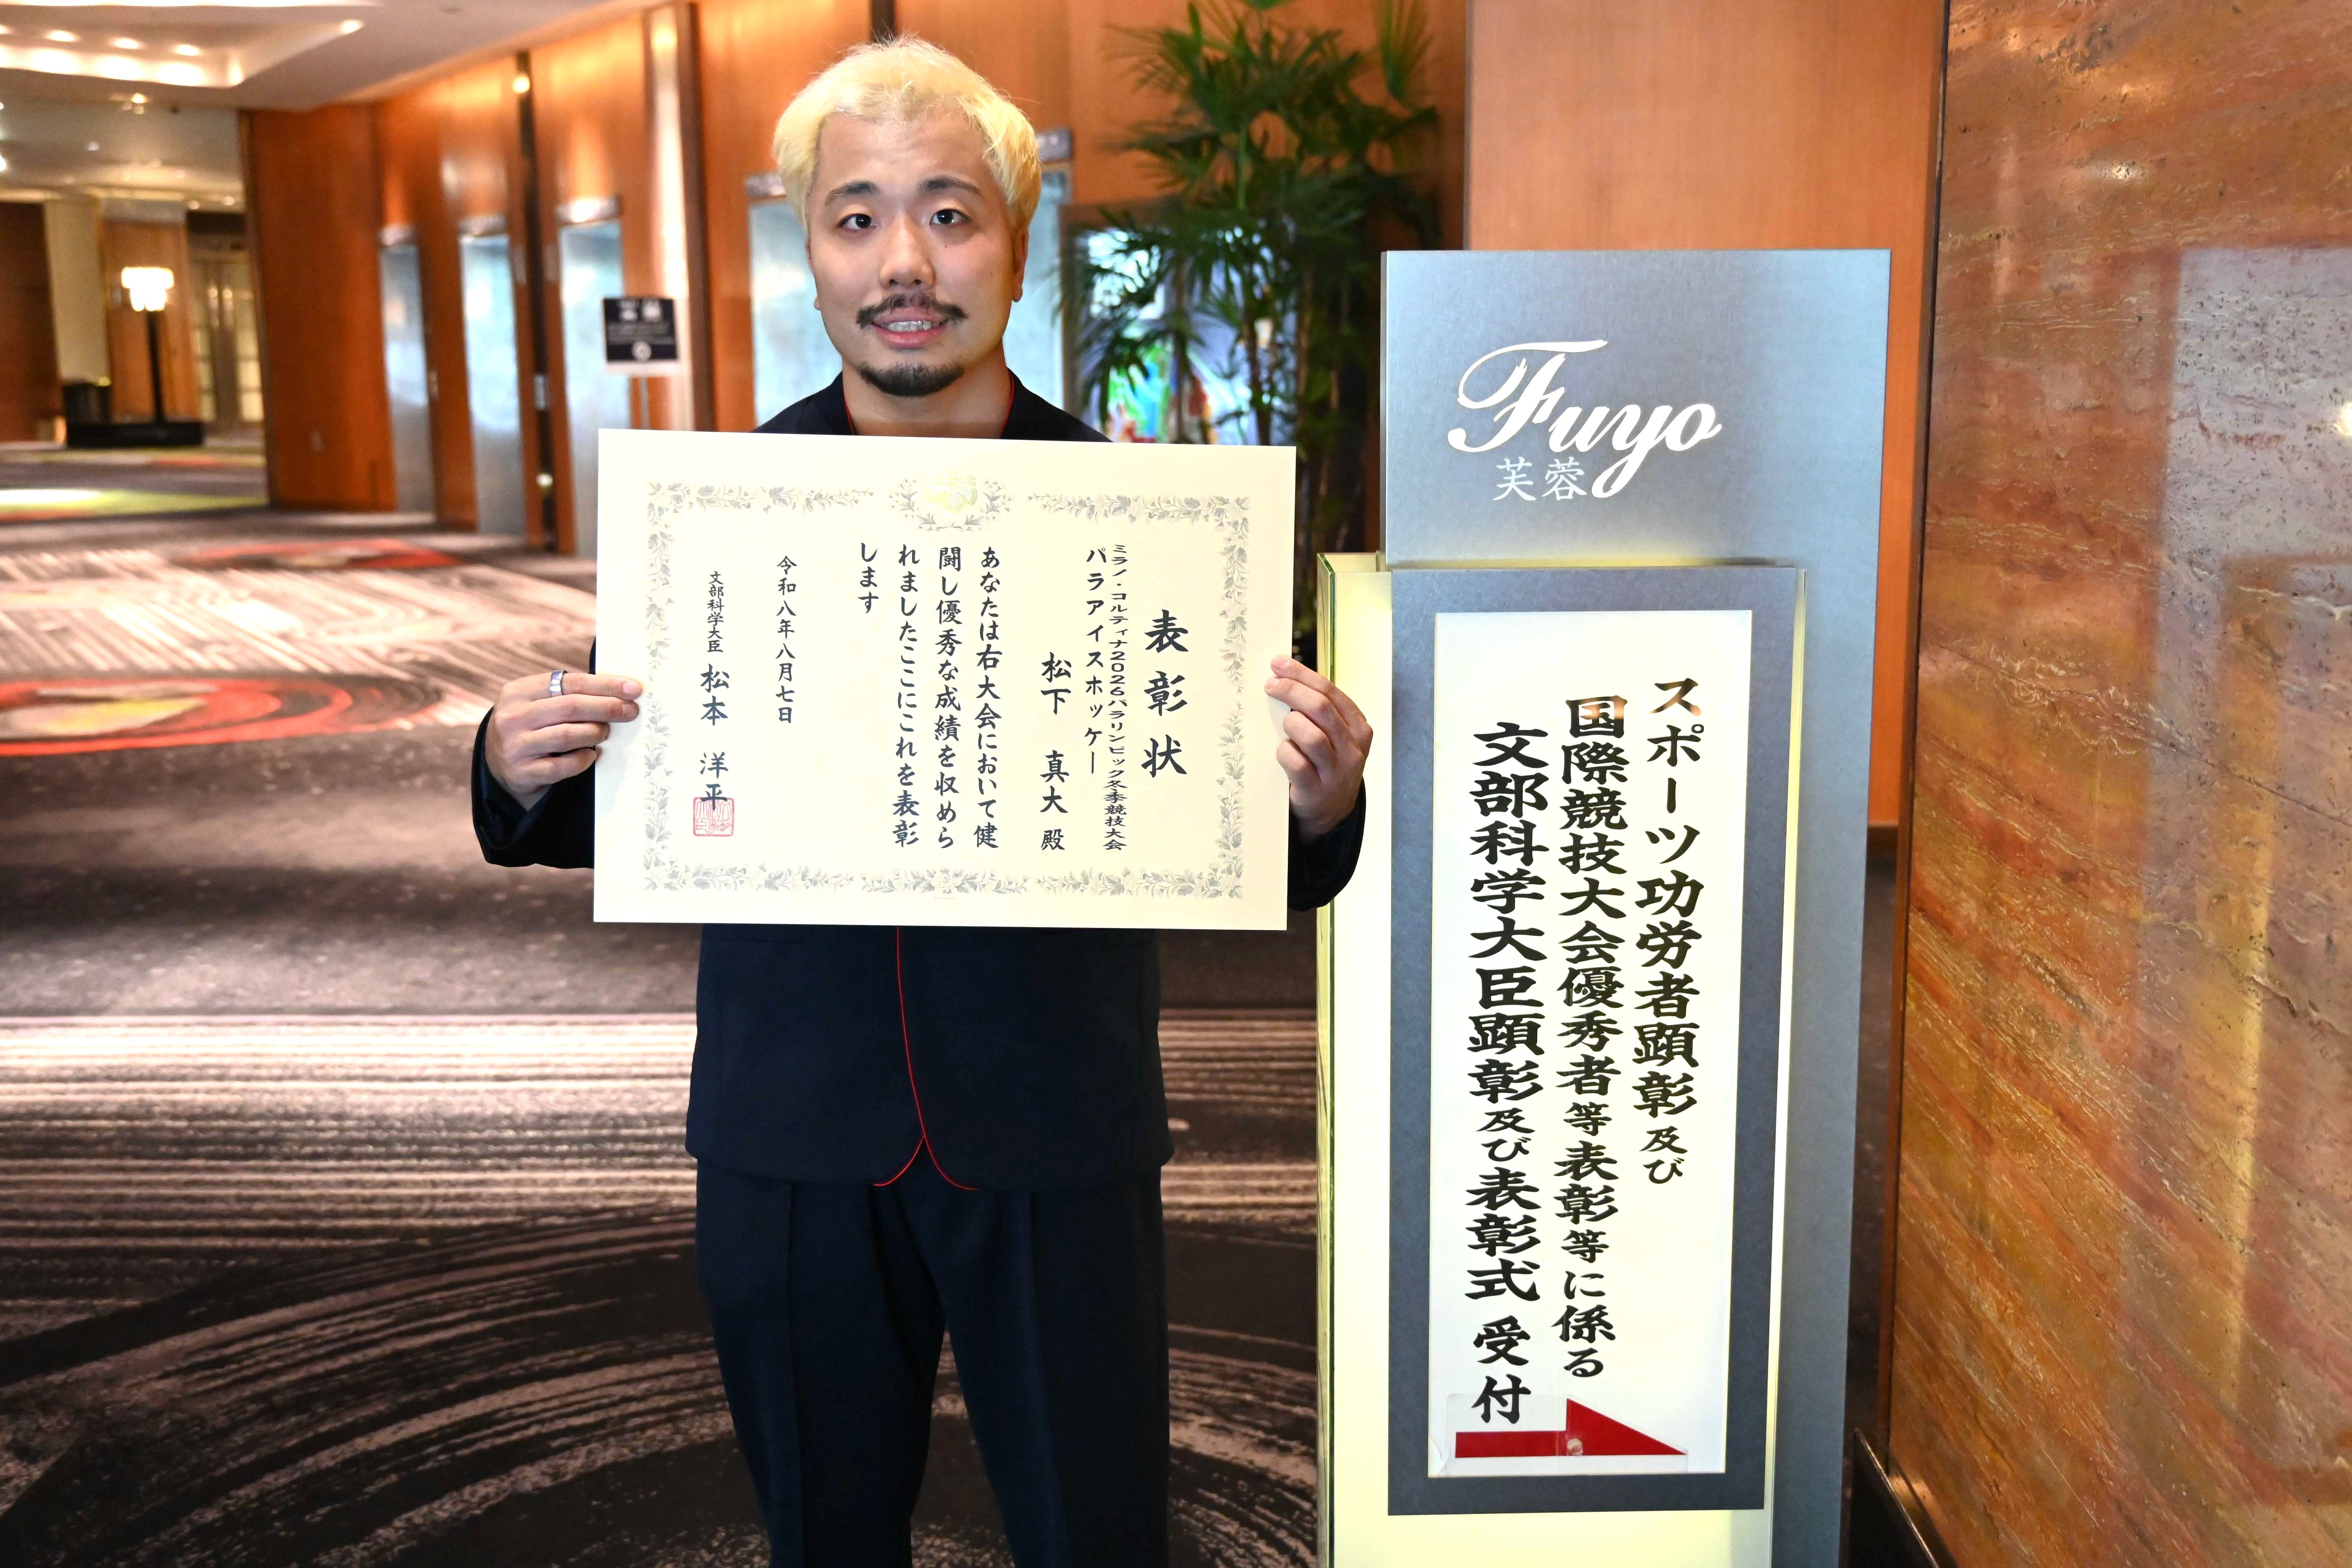 表彰状
ミラノ・コルティナ2026パラリンピック冬季競技大会
パラアイスホッケー
松下 真大 殿
あなたは右大会において健
闘し優秀な成績を収めら
れましたここにこれを表彰
します
令和八年八月七日
文部科学大臣 松本 洋平
Fuyo
芙蓉
スポーツ功労者顕彰及び
国際競技大会優秀者等表彰等に係る
文部科学大臣顕彰及び表彰式 受付